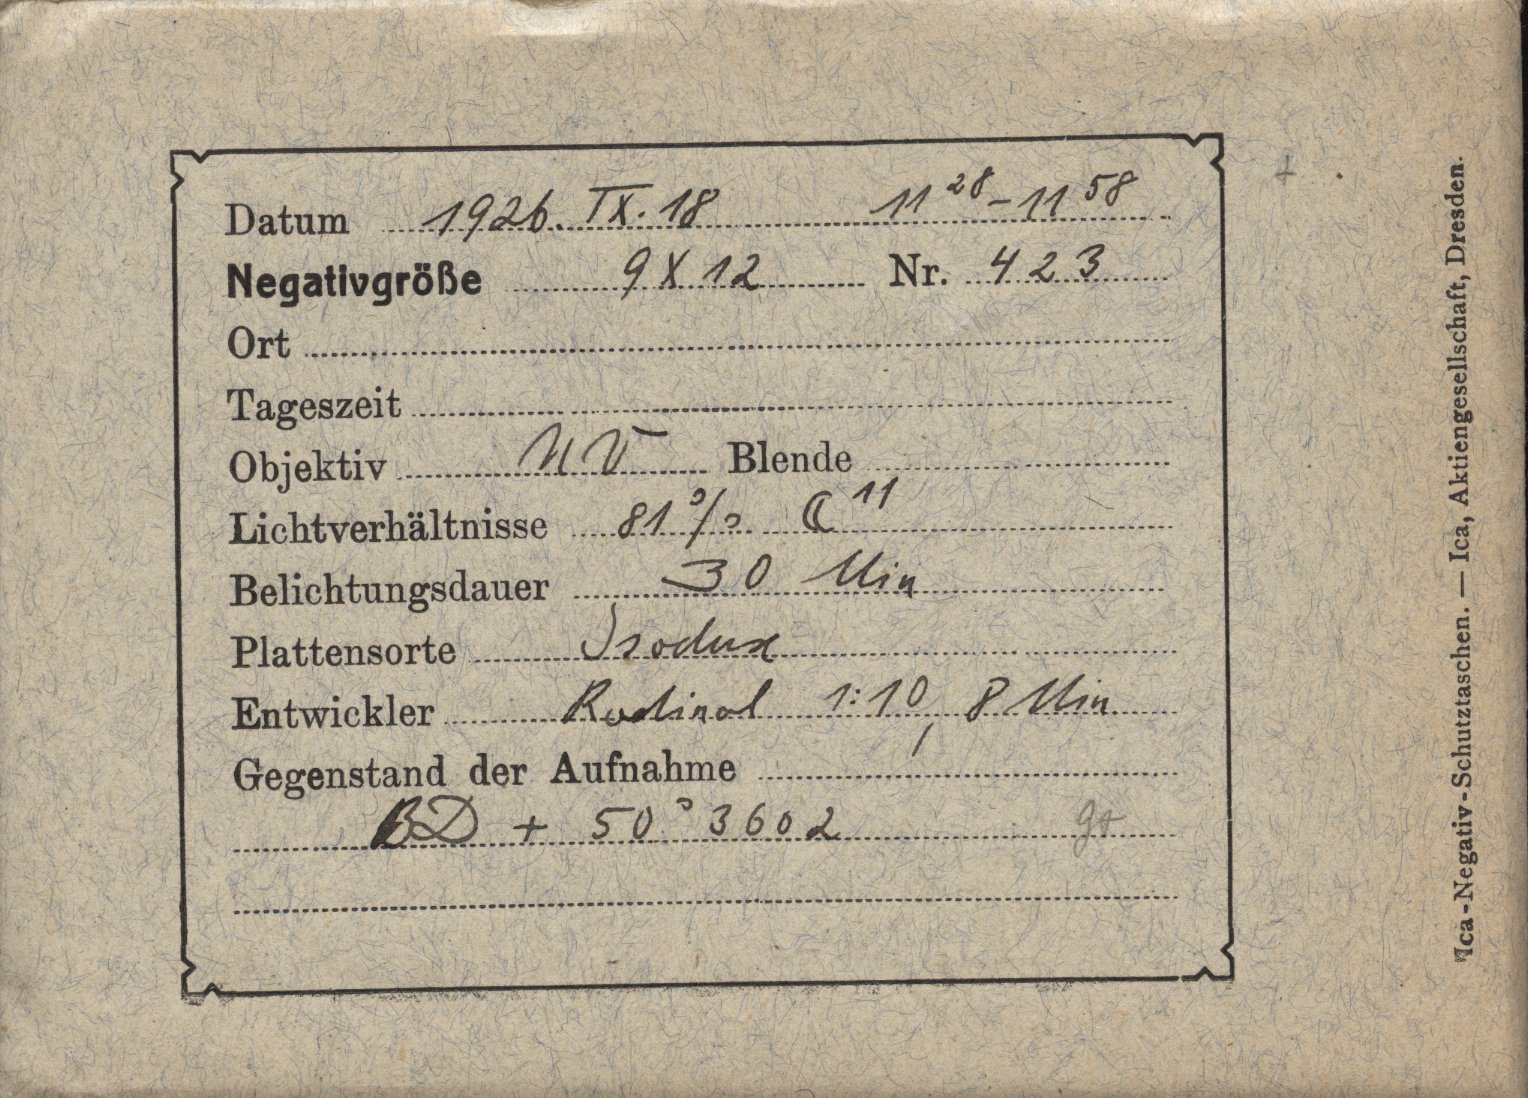 Datum 1926. IX. 18 11 28 - 11 58
Negativgröße 9 X 12 Nr. 423
Ort
Tageszeit
Objektiv UV Blende
Lichtverhältnisse 81 % ☾ 11
Belichtungsdauer 30 Min
Plattensorte Isodux
Entwickler Rodinal 1:10, 8 Min
Gegenstand der Aufnahme
BD + 50° 3602
Ica-Negativ-Schutztaschen. — Ica, Aktiengesellschaft, Dresden.